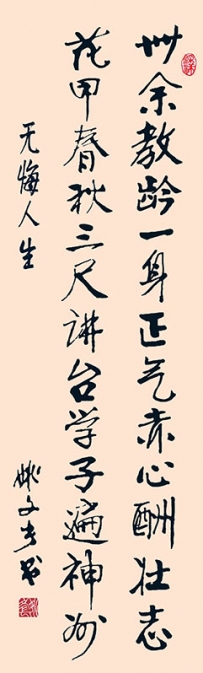 卅余教龄一身正气赤心酬壮志
花甲春秋三尺讲台学子遍神州
无悔人生
姚文方书